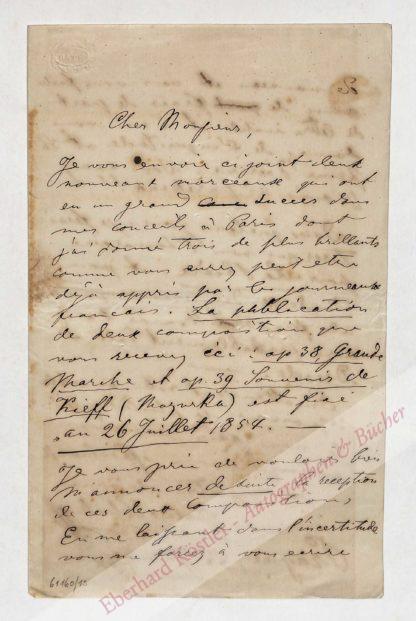 Cher Monsieur,
Je vous envoir ci joint deux
nouveaux morceaux qui ont
eu un grand succes dans
mes concerts à Paris dont
j'ai donné trois de plus brillants
comme vous aurez peut etre
déjà appris par les journeaux
français. La publication
de deux composition que
vous recevez ici: op 38, Grande
Marche et op. 39 Souvenir de
Kieff (Mazurka) est fixé
au 26 Juillet 1854. —
Je vous prie de vouloir bien
m'annoncer de suite la reception
de ces deux compositions
En me laissant dans l'incertitude
vous me forcez à vous ecrire
61160/10
Eberhard Köstler - Autographen & Bücher